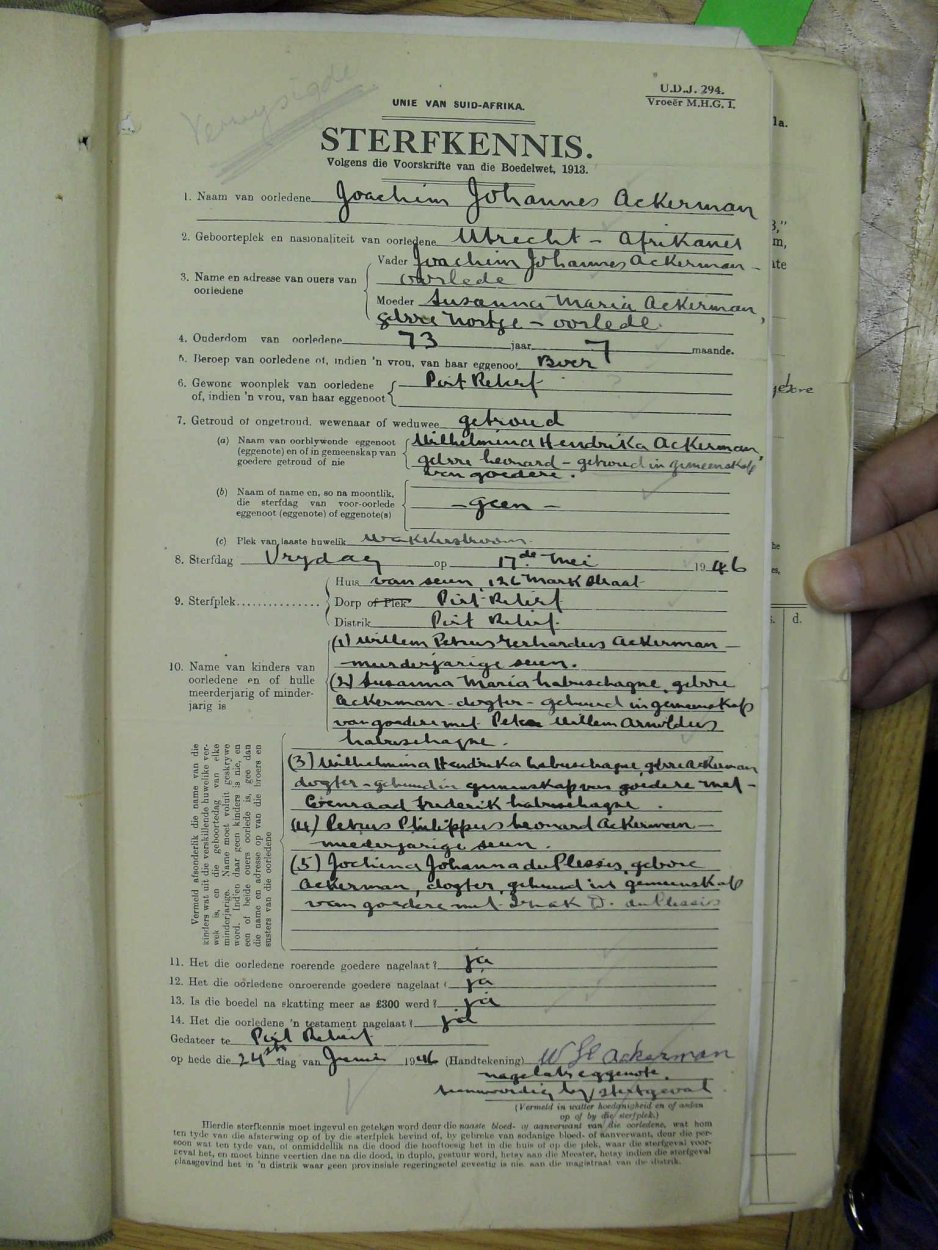 Verwysigde
U.D.J. 294.
Vroeër M.H.G. I.
UNIE VAN SUID-AFRIKA.
STERFKENNIS.
Volgens die Voorskrifte van die Boedelwet, 1913.
1. Naam van oorledene Joachim Johannes Ackerman
2. Geboorteplek en nasionaliteit van oorledene Utrecht - Afrikaner
3. Name en adresse van ouers van oorledene
Vader Joachim Johannes Ackerman -
oorlede
Moeder Susanna Maria Ackerman,
gebore Nortje - oorlede
4. Ouderdom van oorledene 73 jaar 7 maande.
5. Beroep van oorledene of, indien 'n vrou, van haar eggenoot Boer
6. Gewone woonplek van oorledene Piet Retief
of, indien 'n vrou, van haar eggenoot
7. Getroud of ongetroud, wewenaar of weduwee getroud
(a) Naam van oorblywende eggenoot Wilhelmina Hendrika Ackerman,
(eggenote) en of in gemeenskap van gebore Leonard - getroud in gemeenskap
goedere getroud of nie van goedere.
(b) Naam of name en, so na moontlik,
die sterfdag van voor-oorlede - geen -
eggenoot (eggenote) of eggenote(s)
(c) Plek van laaste huwelik Wakkerstroom
8. Sterfdag Vrydag op 17de Mei 1946
9. Sterfplek
Huis van seun, 126 Mark Straat
Dorp of Plek Piet Retief
Distrik Piet Retief
10. Name van kinders van
oorledene en of hulle
meerderjarig of minder-
jarig is
(1) Willem Petrus Gerhardus Ackerman -
meerderjarige seun.
(2) Susanna Maria Labuschagne, gebore
Ackerman - dogter - gehuud in gemeenskap
van goedere met Willem Arnoldus
Labuschagne.
Vermeld afsonderlik die name van die
kinders wat uit die verskillende huwelike ver-
wek is, en die geboortedag van elke
minderjarige. Name moet voluit geskrywe
word. Indien daar geen kinders is nie, en
een of beide ouers oorlede is, gee dan
die name en adresse op van die broers en
susters van die oorledene
(3) Wilhelmina Hendrika Labuschagne, gebore Ackerman
dogter - gehuud in gemeenskap van goedere met -
Coenraad Frederik Labuschagne.
(4) Petrus Philippus Leonard Ackerman -
meederjarige seun.
(5) Jochima Johanna du Plessis, gebore
Ackerman, dogter, gehuud in gemeenskap
van goedere met Izak D. du Plessis
11. Het die oorledene roerende goedere nagelaat? ja
12. Het die oorledene onroerende goedere nagelaat? ja
13. Is die boedel na skatting meer as £300 werd? ja
14. Het die oorledene 'n testament nagelaat? ja
Gedateer te Piet Retief
op hede die 24ste dag van Junie 1946 (Handtekening) W H Ackerman
nagelate eggenote.
teenwoordig by sterfgeval
(Vermeld in watter hoedanigheid en of aldan
op of by die sterfplek.)
Hierdie sterfkennis moet ingevul en geteken word deur die naaste bloed- of aanverwant van die oorledene, wat hom
ten tyde van die afsterwing op of by die sterfplek bevind of, by gebreke van sodanige bloed- of aanverwant, deur die per-
soon wat ten tyde van, of onmiddellik na die dood die hooftoesig het in die huis of op die plek, waar die sterfgeval voor-
geval het, en moet binne veertien dae na die dood, in duplo, gestuur word, hetsy aan die Meester, hetsy indien die sterfgeval
plaasgevind het in 'n distrik waar geen provinsiale regeringsetel gevestig is nie, aan die magistraat van die distrik.
d.